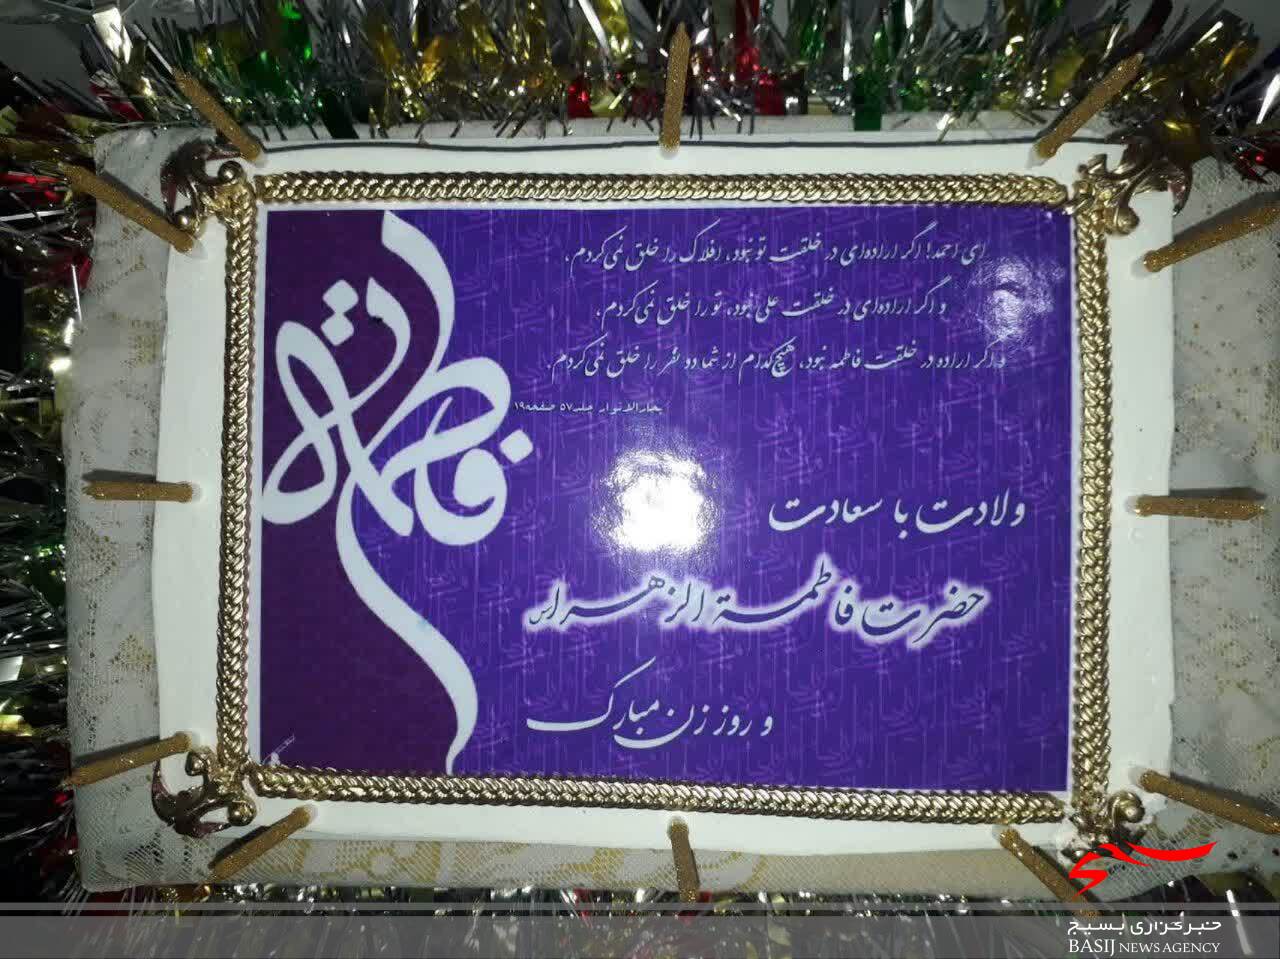 ای احمد! اگر اراده‌ای در خلقت تو نبود، افلاک را خلق نمی‌کردم،
و اگر اراده‌ای در خلقت علی نبود، تو را خلق نمی‌کردم،
و اگر اراده در خلقت فاطمه نبود، هیچ‌کدام از شما دو نفر را خلق نمی‌کردم.
بحارالانوار جلد ۵۷ صفحه ۱۹
فاطمة
ولادت با سعادت
حضرت فاطمة الزهرا س
و روز زن مبارک
خبرگزاری بسیج
BASIJ NEWS AGENCY